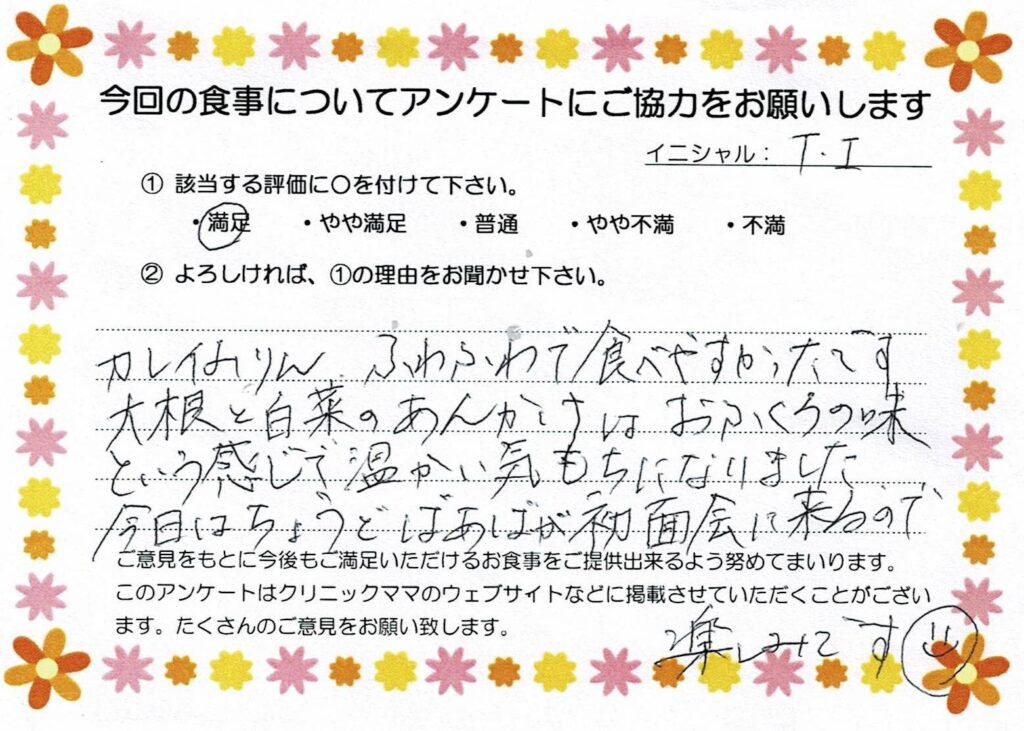 今回の食事についてアンケートにご協力をお願いします
イニシャル： T.I
① 該当する評価に〇を付けて下さい。
・満足 ・やや満足 ・普通 ・やや不満 ・不満
② よろしければ、①の理由をお聞かせ下さい。
カレイみりん ふわふわで食べやすかったです
大根と白菜のあんかけは おふくろの味
という感じで温かい気もちになりました
今日はちょうどばあばが初面会に来るので
ご意見をもとに今後もご満足いただけるお食事をご提供出来るよう努めてまいります。
このアンケートはクリニックママのウェブサイトなどに掲載させていただくことがござい
ます。たくさんのご意見をお願い致します。
楽しみです